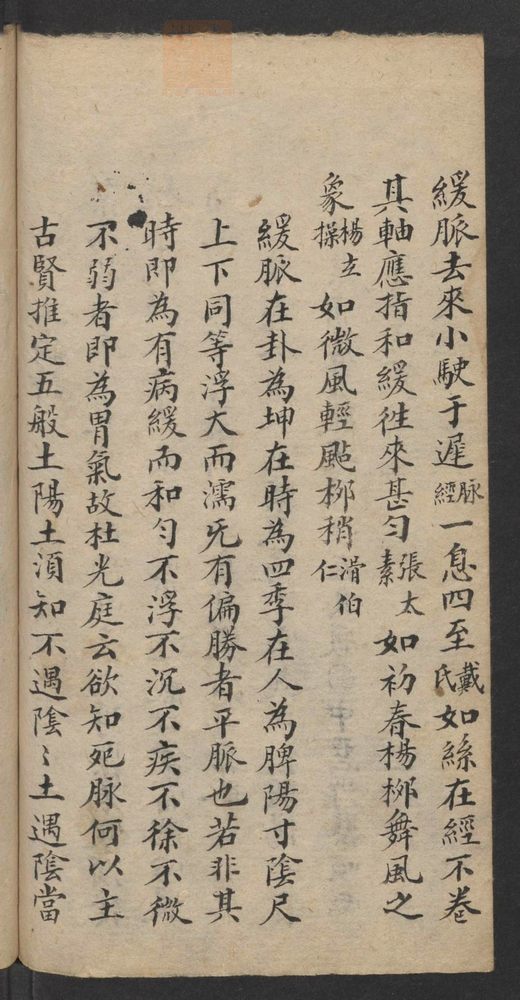 緩脈去來小駛于遲脉經一息四至戴氏如絲在經不卷
其軸應指和緩徃來甚匀張太素如初春楊栁舞風之
象楊立操如微風輕颭栁稍滑伯仁
緩脈在卦為坤在時為四季在人為脾陽寸陰尺
上下同等浮大而濡无有偏勝者平脈也若非其
時即為有病緩而和匀不浮不沉不疾不徐不微
不弱者即為胃氣故杜光庭云欲知死脉何以主
古賢推定五般土陽土須知不遇陰〻土遇陰當